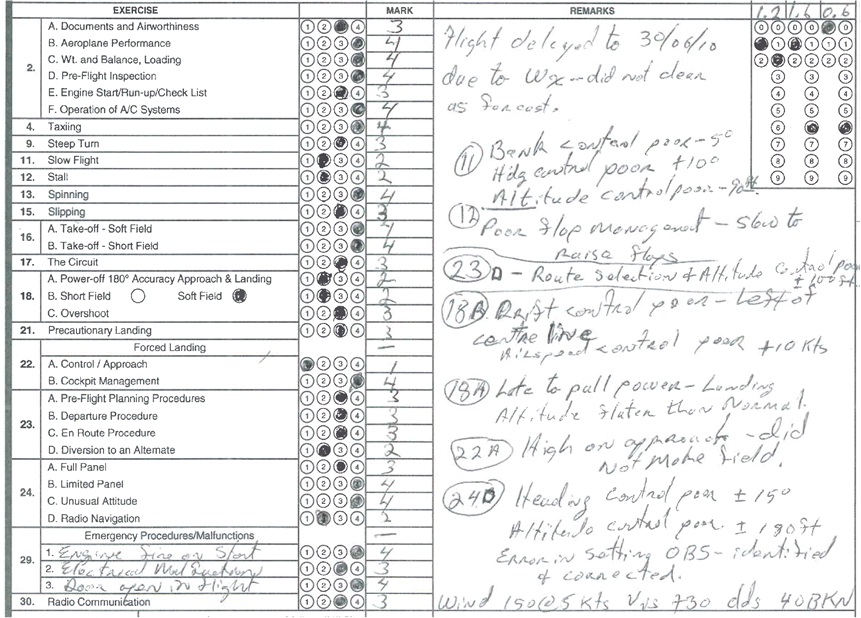 EXERCISE MARK REMARKS 1.2 1.6 0.6
2. A. Documents and Airworthiness 1 2 3 4 3
B. Aeroplane Performance 1 2 3 4 4
C. Wt. and Balance, Loading 1 2 3 4 4
D. Pre-Flight Inspection 1 2 3 4 4
E. Engine Start/Run-up/Check List 1 2 3 4 3
F. Operation of A/C Systems 1 2 3 4 4
4. Taxiing 1 2 3 4 4
9. Steep Turn 1 2 3 4 3
11. Slow Flight 1 2 3 4 2
12. Stall 1 2 3 4 2
13. Spinning 1 2 3 4 4
15. Slipping 1 2 3 4 3
16. A. Take-off - Soft Field 1 2 3 4 4
B. Take-off - Short Field 1 2 3 4 4
17. The Circuit 1 2 3 4 3
18. A. Power-off 180° Accuracy Approach & Landing 1 2 3 4 2
B. Short Field Soft Field 1 2 3 4 2
C. Overshoot 1 2 3 4 3
21. Precautionary Landing 1 2 3 4 3
Forced Landing —
22. A. Control / Approach 1 2 3 4 1
B. Cockpit Management 1 2 3 4 4
23. A. Pre-Flight Planning Procedures 1 2 3 4 3
B. Departure Procedure 1 2 3 4 3
C. En Route Procedure 1 2 3 4 3
D. Diversion to an Alternate 1 2 3 4 2
24. A. Full Panel 1 2 3 4 3
B. Limited Panel 1 2 3 4 4
C. Unusual Attitude 1 2 3 4 4
D. Radio Navigation 1 2 3 4 2
Emergency Procedures/Malfunctions —
29. 1. Engine fire on Start 1 2 3 4 4
2. Electrical Malfunction 1 2 3 4 3
3. Door open in flight 1 2 3 4 4
30. Radio Communication 1 2 3 4 3
Flight delayed to 30/06/10
due to Wx - did not clear
as forcast.
11 Bank control poor - 5°
Hdg control poor +10°
Altitude control poor - 90ft
12 Poor flap management - slow to
raise flaps
23D - Route Selection & Altitude control poor
± 100ft
18B Drift control poor - Left of
centre line
Airspeed control poor +10 Kts
18A Late to pull power - Landing
Altitude flater than Normal.
22A High on approach - did
not make field.
24D Heading control poor ± 15°
Altitude control poor. ± 180ft
Error in setting OBS - identified
& corrected.
Wind 150@5 Kts Vis 730 40BKN
0 0 0 0 0 0
1 1 1 1 1 1
2 2 2 2 2 2
3 3 3
4 4 4
5 5 5
6 6 6
7 7 7
8 8 8
9 9 9